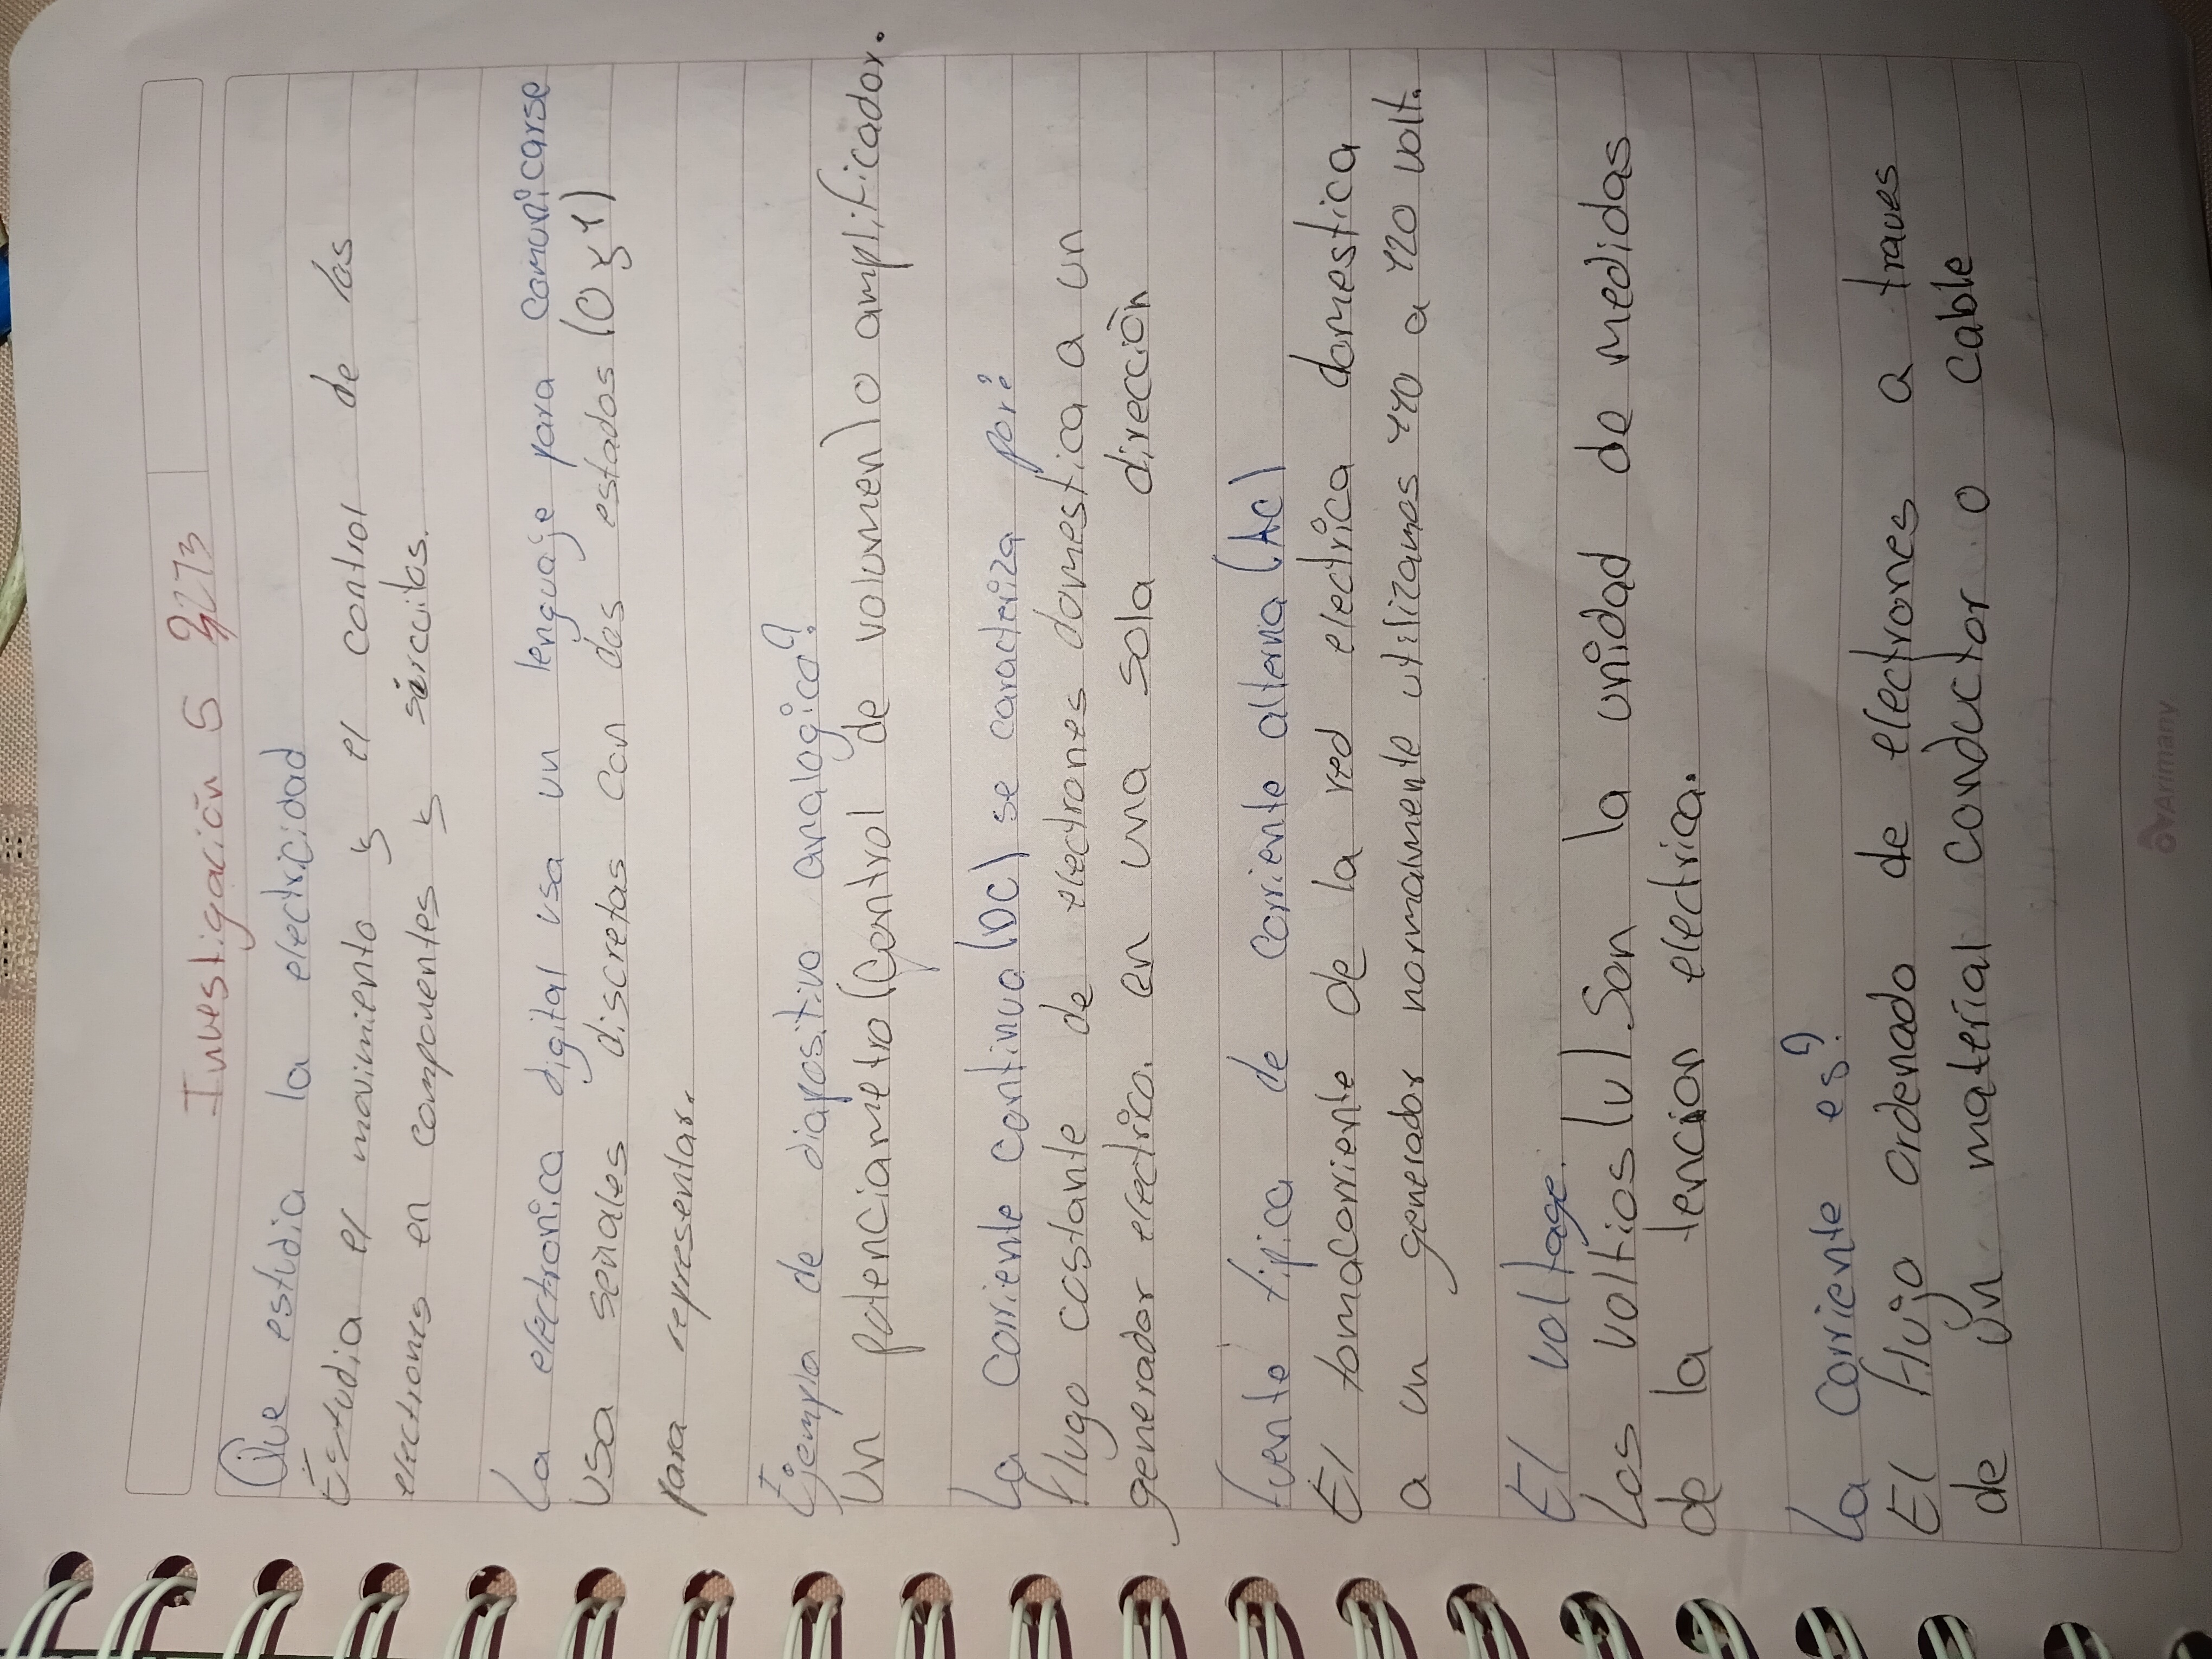 Investigación 5
Que estudia la electricidad
Estudia el movimiento y el control de las
electrones en componentes y sircuitos.
La electronica digital usa un lenguaje para comunicarse
usa señales discretas con dos estados (0 y 1)
para representar.
Ejemplo de diapositivo analogico?
Un potenciametro (Control de volumen) o amplificador.
La corriente continua (DC) se caracteriza por?
flugo costante de electrones domestica a un
generador electrico. en una sola dirección
fuente tipica de corriente alterna (AC)
El tomacorriente de la red electrica domestica
a un generador normalmente utilizamos 110 a 120 volt.
El voltage.
Los voltios (v) Son la unidad de medidas
de la tencion electrica.
La corriente es?
El flujo ordenado de electrones a traves
de un material conductor o cable
Arimany